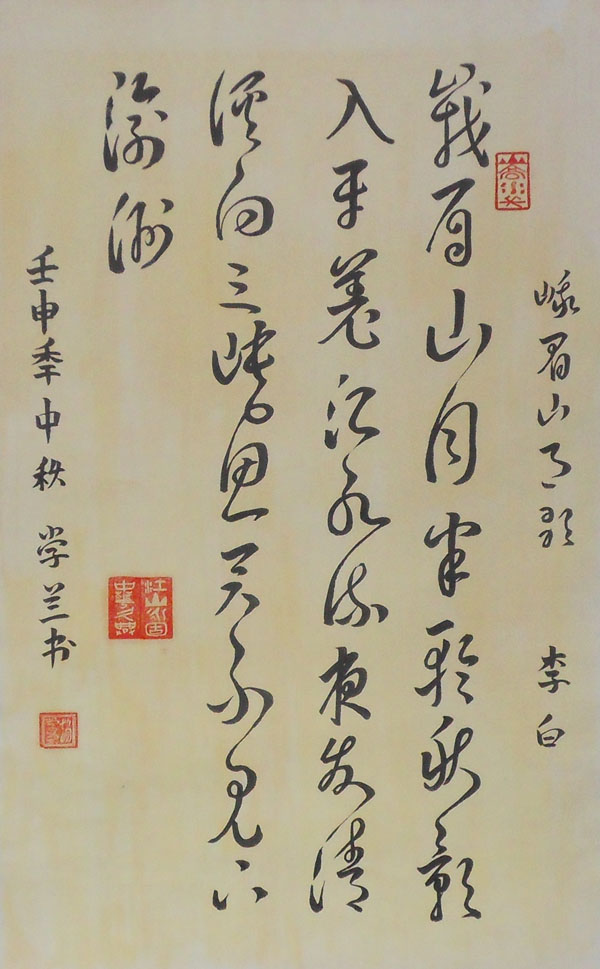 峨眉山月歌 李白
峩眉山月半轮秋影
入平羌江水流夜发清
溪向三峡思君不见下
渝州
壬申秊中秋 学兰书
江山永固